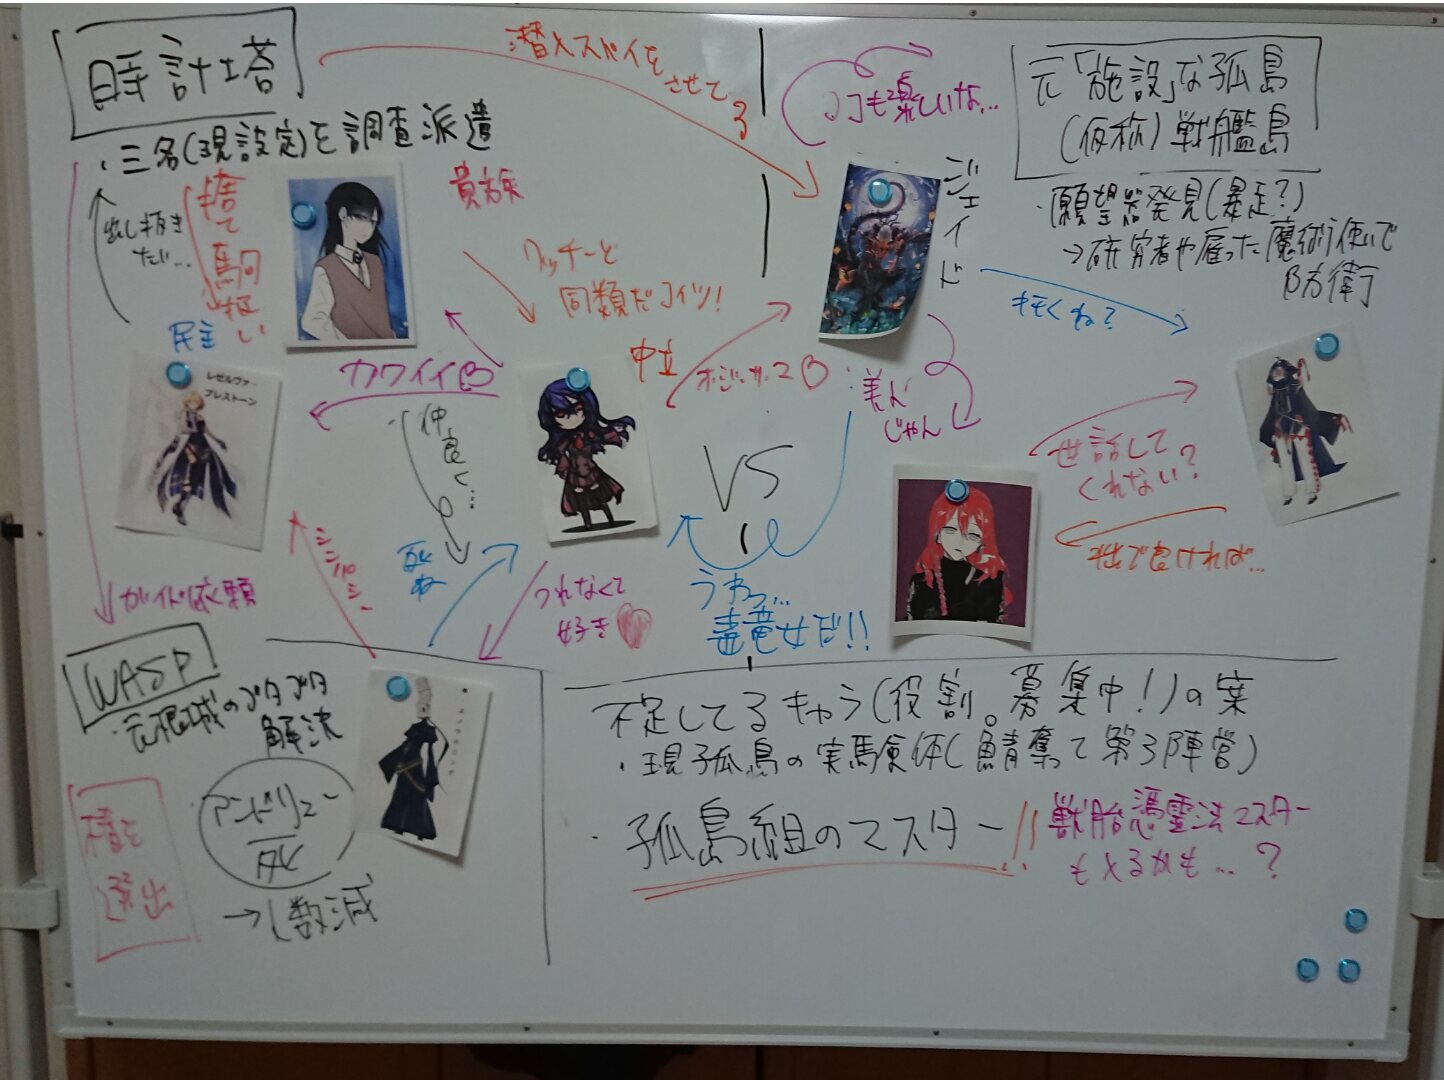 時計塔
・三名(現設定)を調査派遣
潜入スパイをさせてる
ココも楽しいな…
元「施設」な孤島
(仮称)戦艦島
・願望器発見(暴走?)
→研究者や雇った魔術使いで
防衛
出し抜き
たい…
捨て駒扱い
貴族
ワッチーと
同類だコイツ!
ジェイド
キモくね?
民主
レゼルヴァ・
プレストーン
カワイイ
中立
仲良く…
美人
じゃん
VS
世話して
くれない?
私で良ければ…
ガイド依頼
死ね
つれなくて
好き
うわっ…
毒竜女だ!!
WASP
・元根城のゴタゴタ
解決
アンドリュー
死
→し数減
種を
選出
不足してるキャラ(役割。募集中!)の案
・現孤島の実験体(鯖奪って第3陣営)
・孤島組のマスター!!
獣胎憑霊法マスター
もいるかも…?